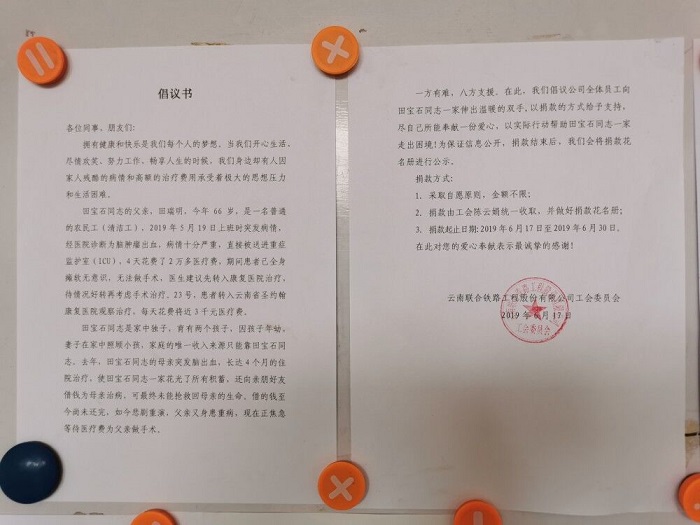 倡议书
各位同事、朋友们:
拥有健康和快乐是我们每个人的梦想。当我们开心生活,
尽情欢笑、努力工作,畅享人生的时候,我们身边却有人因
家人残酷的病情和高额的治疗费用承受着极大的思想压力
和生活困难。
田宝石同志的父亲,田瑞明,今年 66 岁,是一名普通
的农民工(清洁工)。2019 年 5 月 19 日上班时突发病情,
经医院诊断为脑肿瘤出血,病情十分严重,直接被送进重症
监护室(ICU),4 天花费了 2 万多医疗费,期间患者已全身
瘫软无意识,无法做手术,医生建议先转入康复医院治疗,
待情况好转再考虑手术治疗。23 号,患者转入云南省圣约翰
康复医院观察治疗,每天花费将近 3 千元医疗费。
田宝石同志是家中独子,育有两个孩子,因孩子年幼,
妻子在家中照顾小孩,家庭的唯一收入来源只能靠田宝石同
志。去年,田宝石同志的母亲突发脑出血,长达 4 个月的住
院治疗,使田宝石同志一家花光了所有积蓄,还向亲朋好友
借钱为母亲治病,可最终未能抢救回母亲的生命。借的钱至
今尚未还完,如今悲剧重演,父亲又身患重病,现在正焦急
等待医疗费为父亲做手术。
一方有难,八方支援。在此,我们倡议公司全体员工向
田宝石同志一家伸出温暖的双手,以捐款的方式给予支持,
尽自己所能奉献一份爱心,以实际行动帮助田宝石同志一家
走出困境!为保证信息公开,捐款结束后,我们会将捐款花
名册进行公示。
捐款方式:
1. 采取自愿原则,金额不限;
2. 捐款由工会陈云娟统一收取,并做好捐款花名册;
3. 捐款起止日期:2019 年 6 月 17 日至 2019 年 6 月 30 日。
在此对您的爱心奉献表示最诚挚的感谢!
云南联合铁路工程股份有限公司工会委员会
2019 年 6 月 17 日
工会委员会